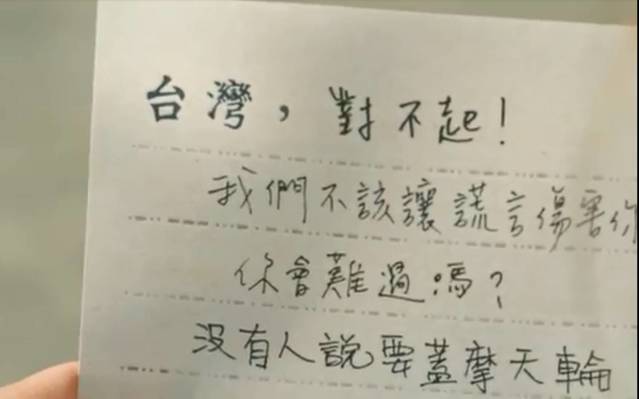 台灣，對不起！
我們不該讓謊言傷害你
你會難過嗎？
沒有人說要蓋摩天輪